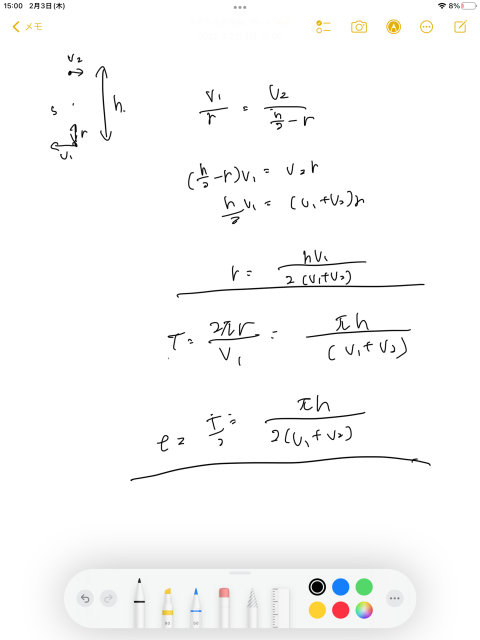 15:00 2月3日(木) 8%
メモ
V₂
h.
s
r
V₁
V₁/r = V₂/(h/2 - r)
(h/2 - r)V₁ = V₂r
h/2 V₁ = (V₁+V₂)r
r = hV₁/2(V₁+V₂)
T = 2πr/V₁ = πh/(V₁+V₂)
t = T/2 = πh/2(V₁+V₂)